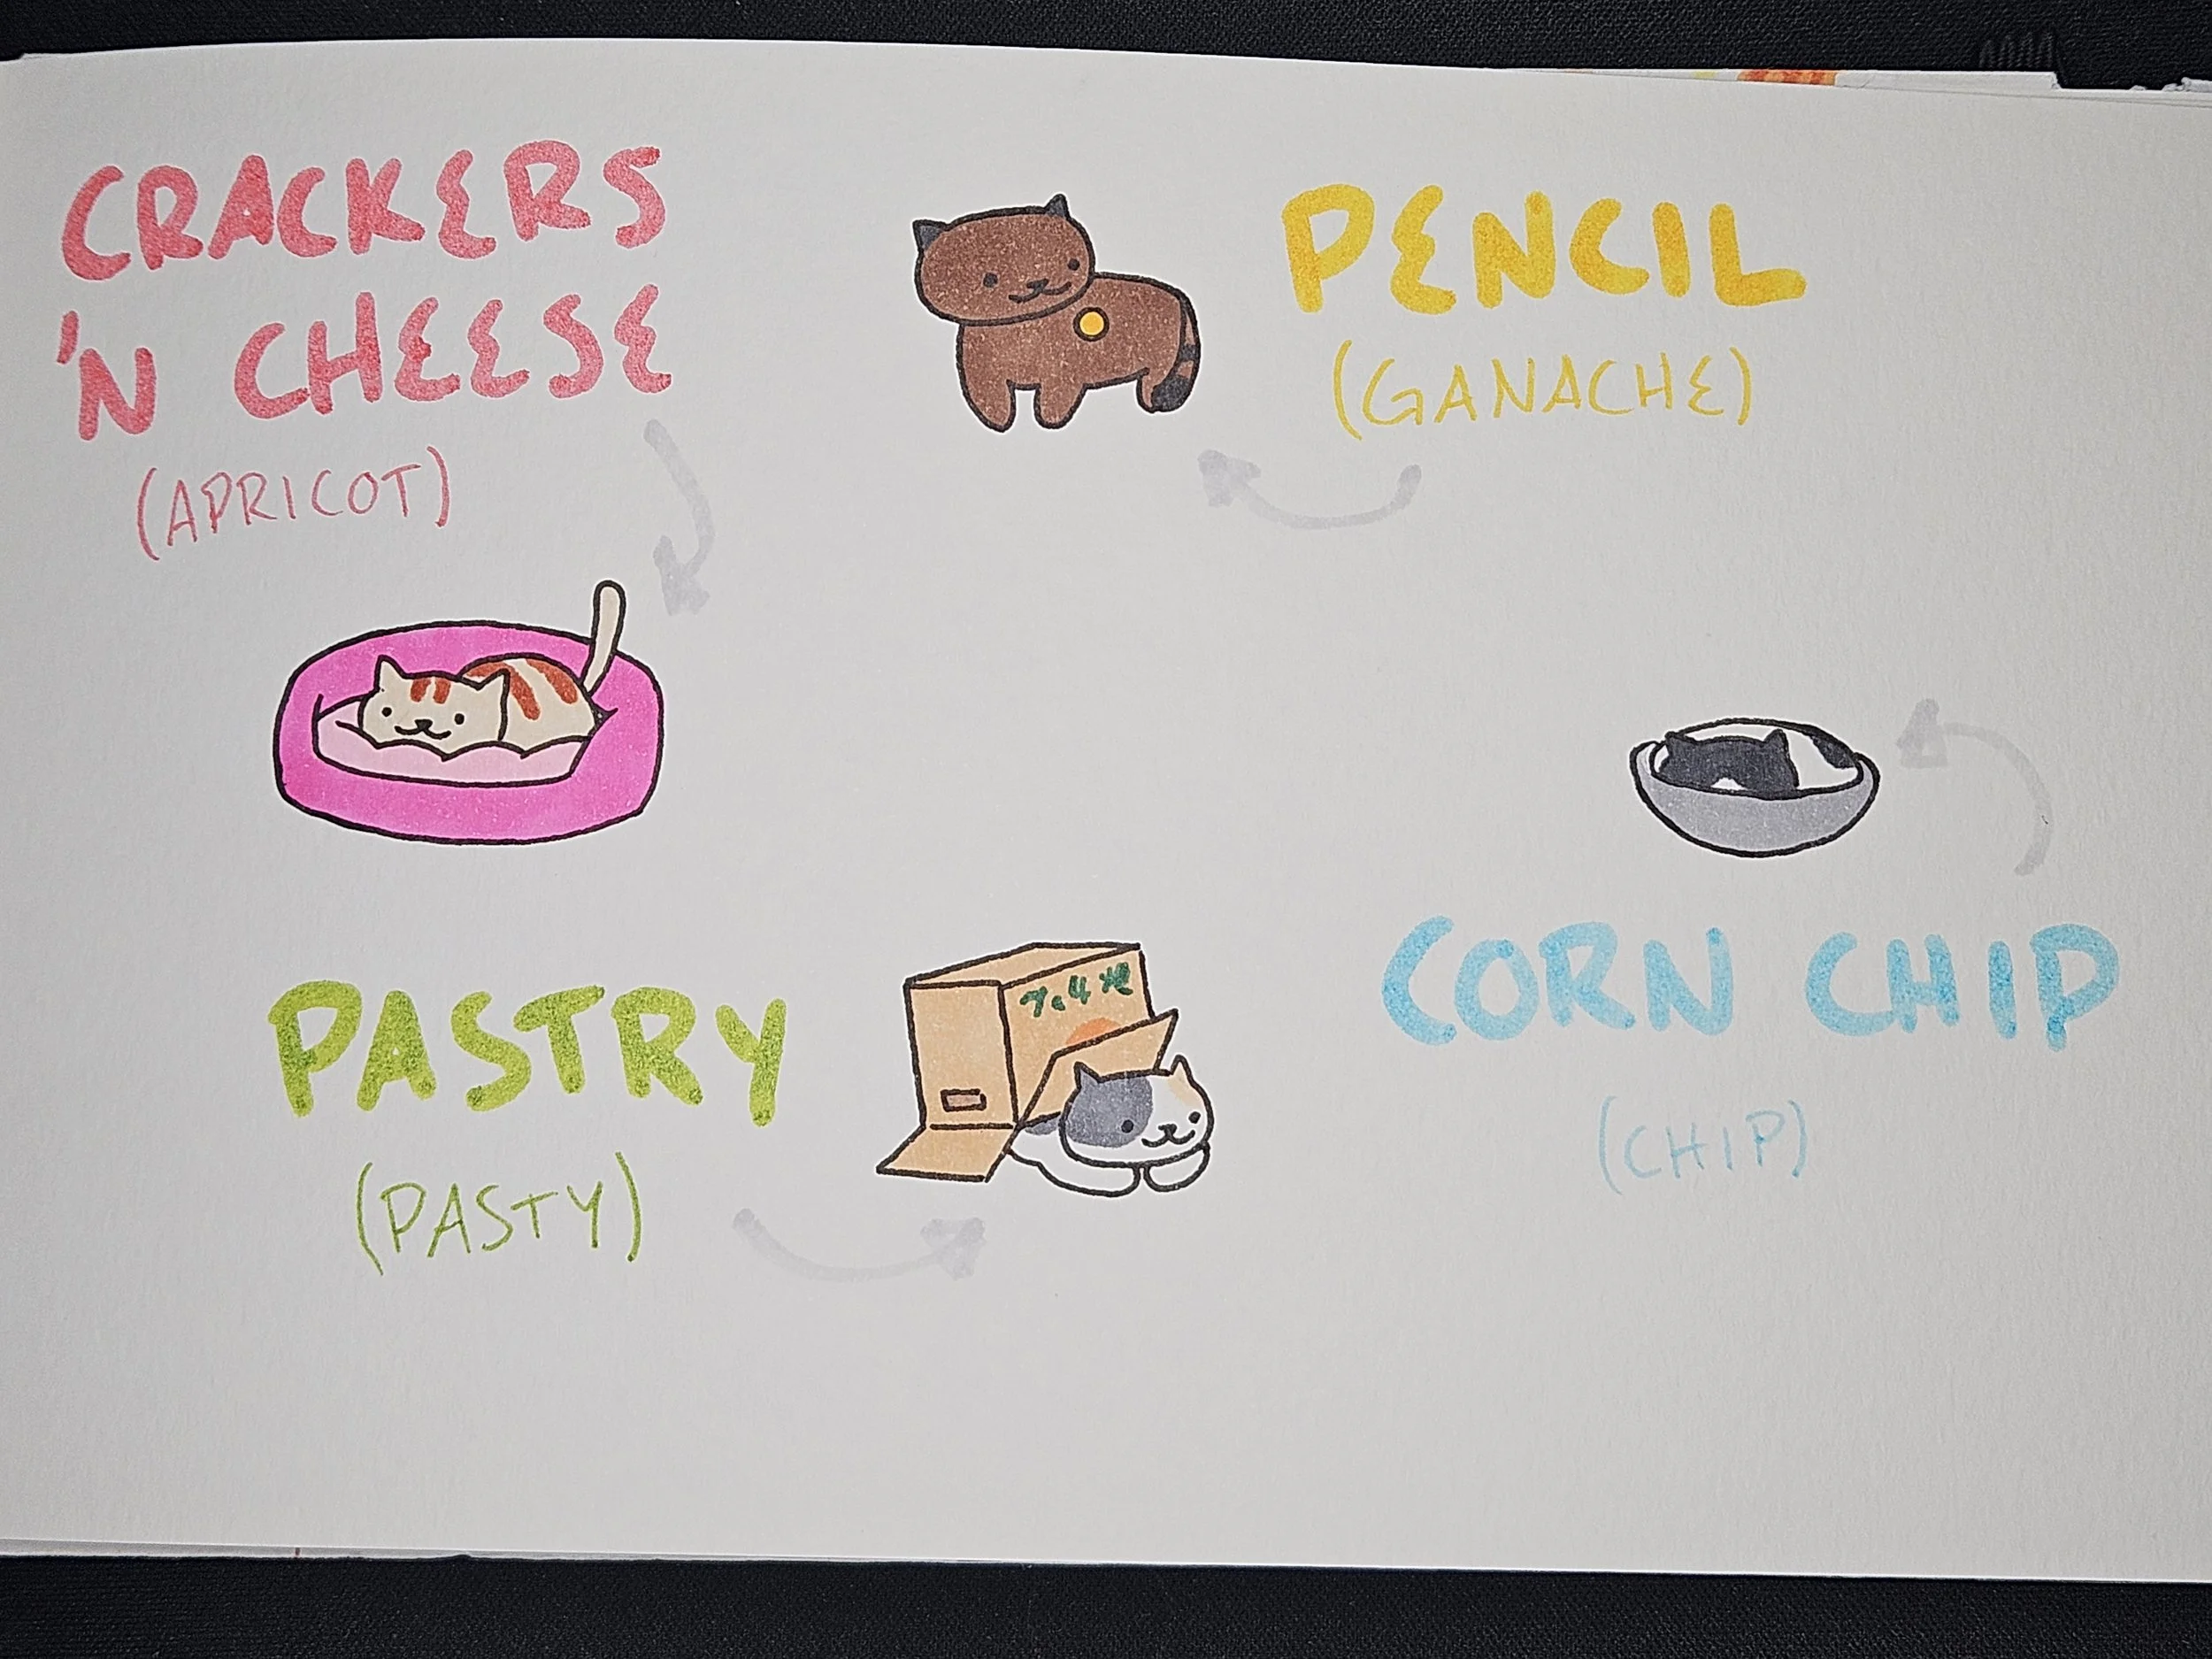 CRACKERS
'N CHEESE
(APRICOT)
PENCIL
(GANACHE)
PASTRY
(PASTY)
CORN CHIP
(CHIP)